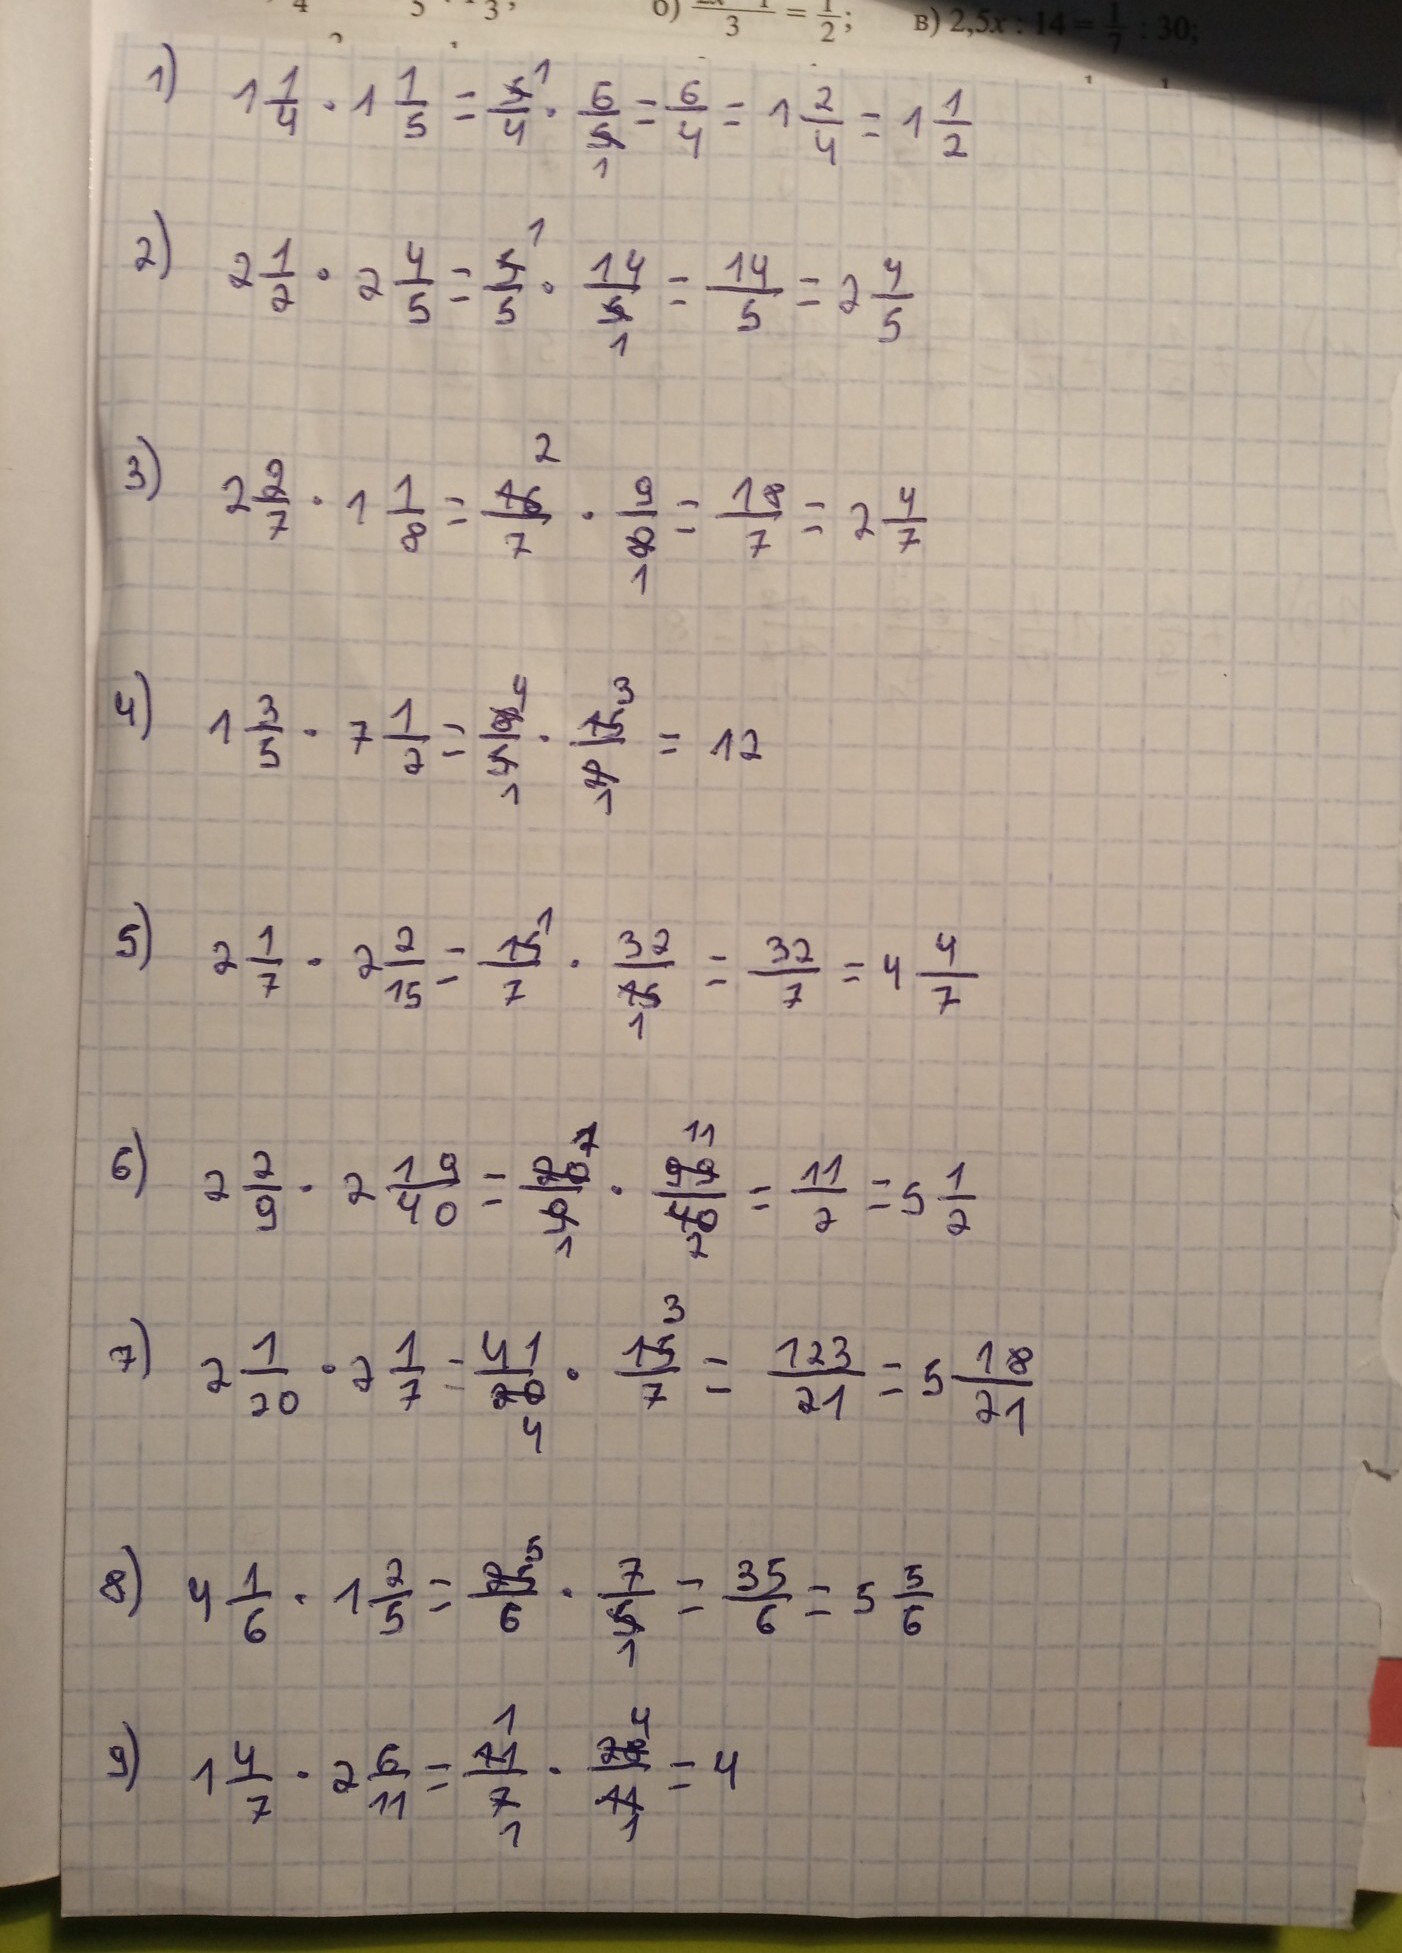 б) 3 = 1/2; в) 2,5x : 14 = 1/7 : 30;
1) 1 1/4 · 1 1/5 = 5/4 1 · 6/5 1 = 6/4 = 1 2/4 = 1 1/2
2) 2 1/2 · 2 4/5 = 5/5 1 · 14/5 1 = 14/5 = 2 4/5
3) 2 2/7 · 1 1/8 = 16/7 2 · 9/8 1 = 18/7 = 2 4/7
4) 1 3/5 · 7 1/2 = 8/5 4 1 · 15/2 3 1 = 12
5) 2 1/7 · 2 2/15 = 15/7 1 · 32/15 1 = 32/7 = 4 4/7
6) 2 2/9 · 2 19/40 = 20/9 1 1 · 99/40 11 2 = 11/2 = 5 1/2
7) 2 1/20 · 2 1/7 = 41/20 4 · 15/7 3 = 123/21 = 5 18/21
8) 4 1/6 · 1 2/5 = 25/6 5 · 7/5 1 = 35/6 = 5 5/6
9) 1 4/7 · 2 6/11 = 11/7 1 1 · 28/11 4 1 = 4